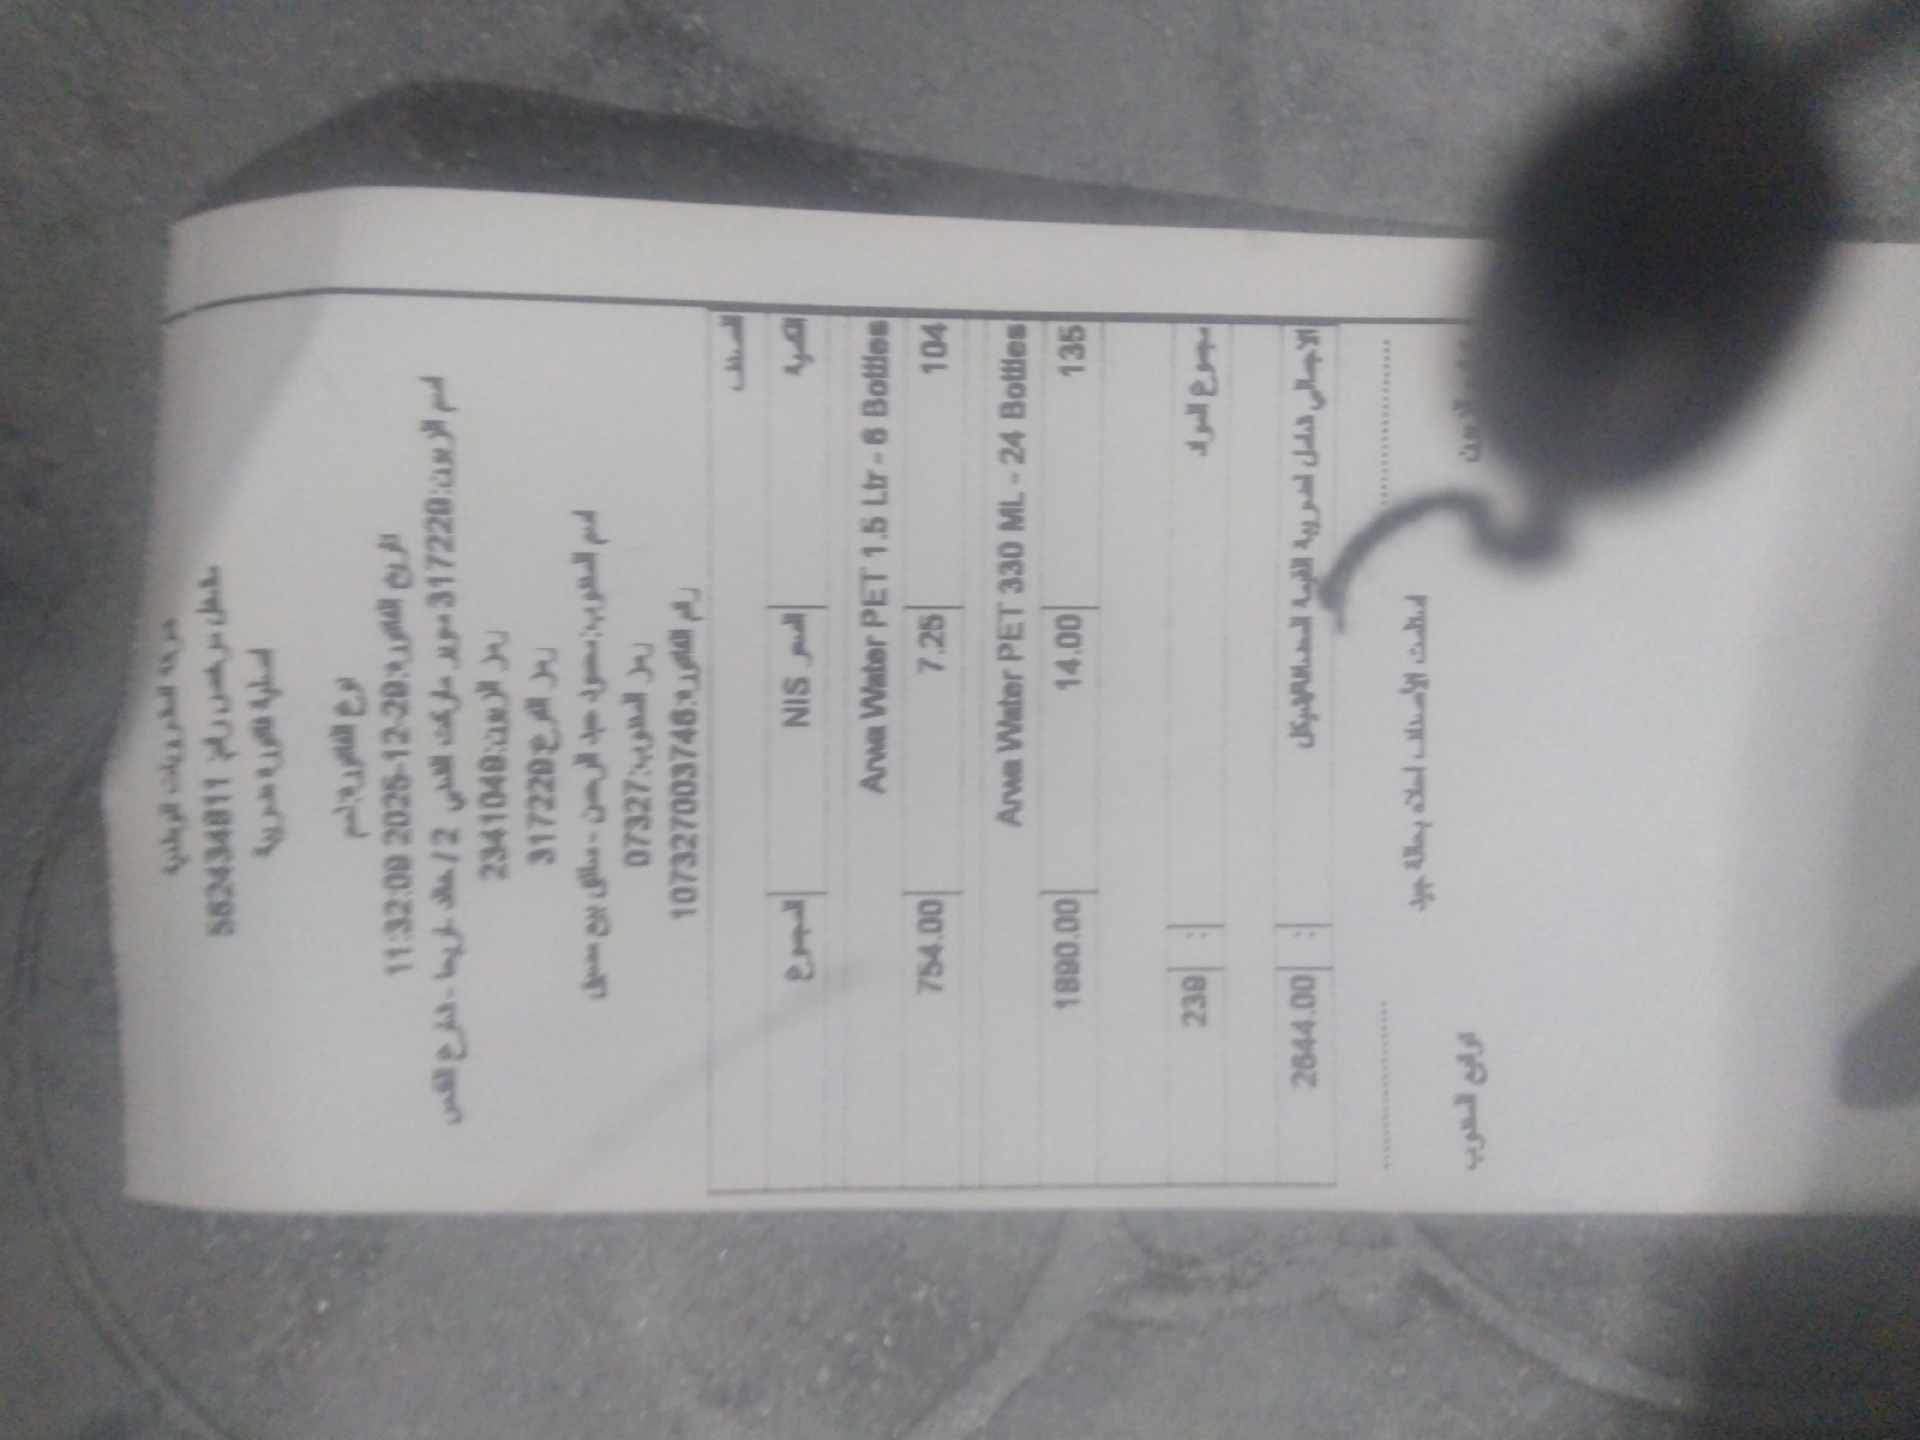 شركة المشروبات الوطنية
مشغل مرخص رقم: 562434811
اسلية فاتورة ضريبية
نوع الفاتورة:ذمم
تاريخ الفاتورة:2025-12-20 11:32:09
اسم الزبون:317229 سوبر ماركت القدس 2 / خالد - شارع القدس
رمز الزبون:2341049
رمز الفرع:317229
اسم المندوب: عبد الرحمن - مناطق بيع
رمز المندوب:07327
رقم الفاتورة:1073270037746
الصنف
الكمية السعر NIS المجموع
Arwa Water PET 1.5 Ltr - 6 Bottles
104 7.25 754.00
Arwa Water PET 330 ML - 24 Bottles
135 14.00 1890.00
مجموع المواد : 239
الاجمالي شامل ضريبة القيمة المضافة/شيكل : 2644.00
استلمت الأصناف اعلاه بحالة جيدة
توقيع المندوب